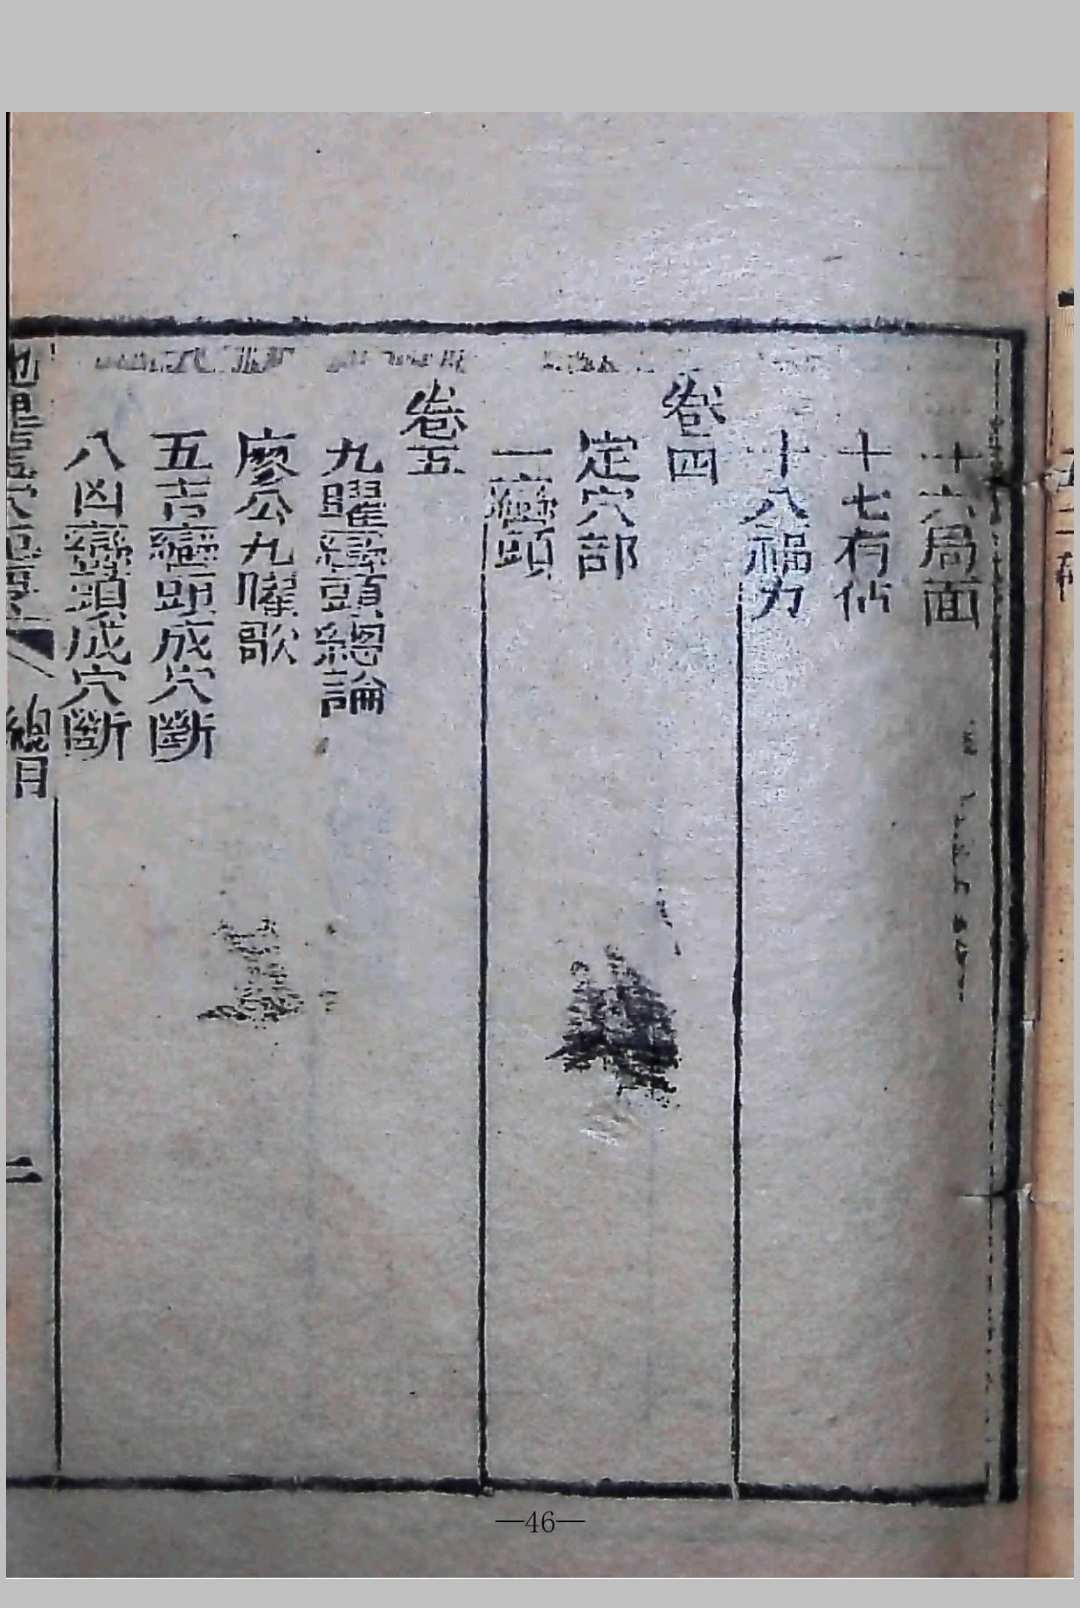 十六局面
十七有佔
十八福力
卷四
定穴部
一巒頭
卷五
九曜巒頭總論
廖公九曜歌
五吉巒頭成穴斷
八凶巒頭成穴斷
總目
二
—46—